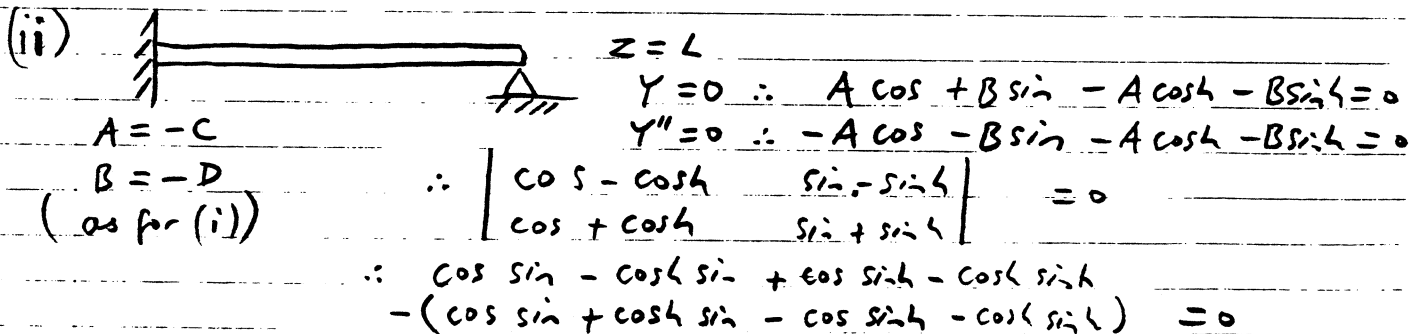 (ii)
z = L
Y = 0 ∴ A cos + B sin - A cosh - B sinh = 0
A = -C
Y" = 0 ∴ -A cos - B sin - A cosh - B sinh = 0
B = -D
(as for (i))
∴ | cos - cosh sin - sinh | = 0
| cos + cosh sin + sinh |
∴ cos sin - cosh sin + cos sinh - cosh sinh
-(cos sin + cosh sin - cos sinh - cosh sinh) = 0